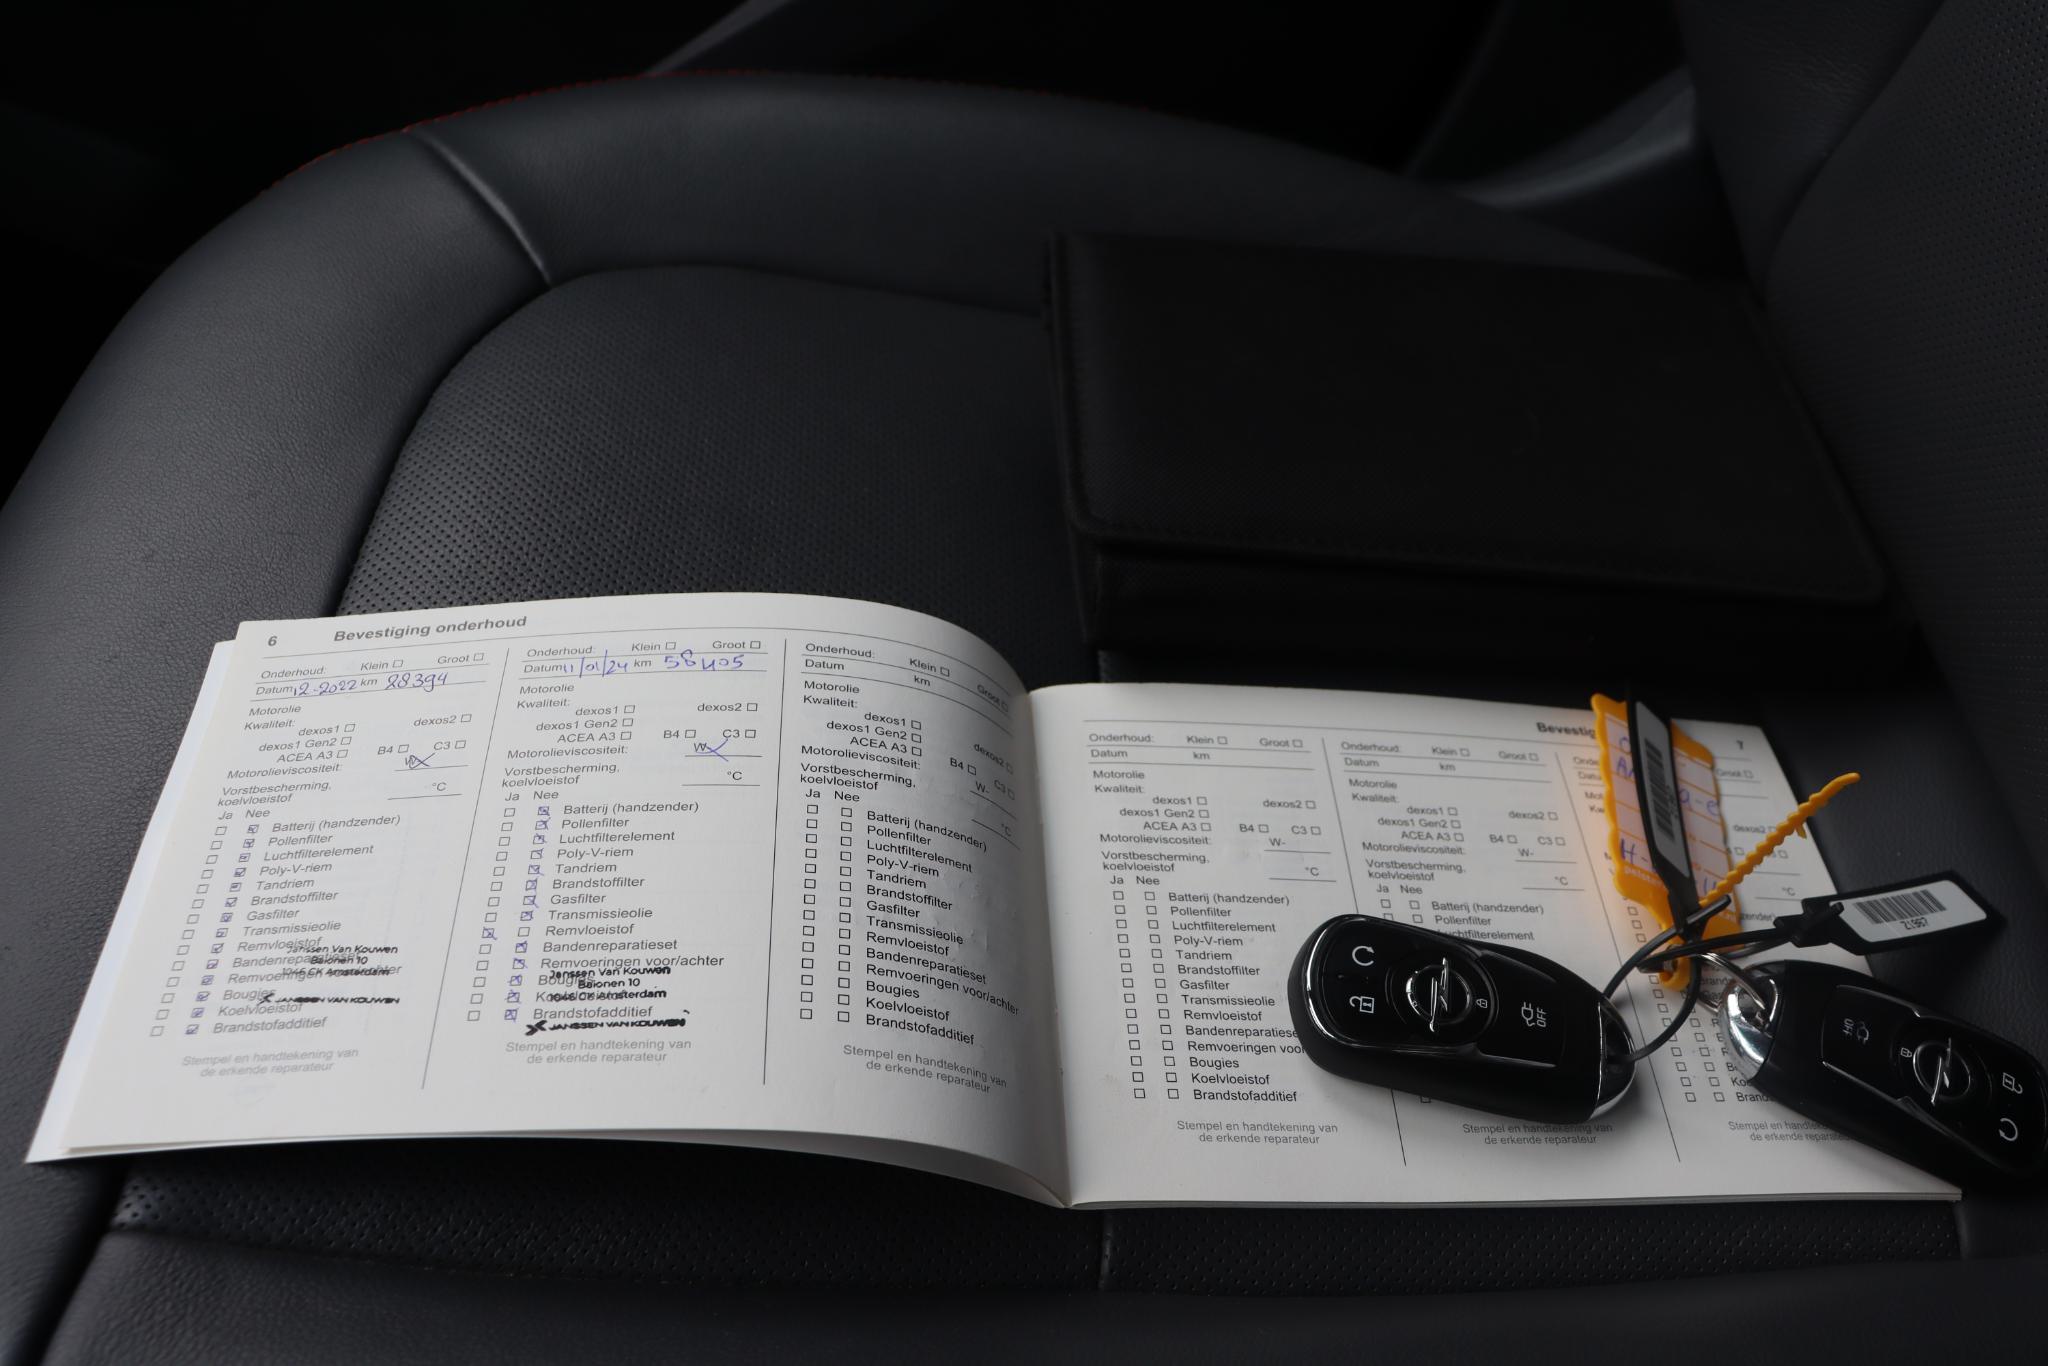 6 Bevestiging onderhoud
Onderhoud: Klein Groot
Datum 12-2022 km 28394
Motorolie
Kwaliteit:
dexos1 dexos2
dexos1 Gen2
ACEA A3 B4 C3
Motorolieviscositeit: W-
Vorstbescherming,
koelvloeistof °C
Ja Nee
Batterij (handzender)
Pollenfilter
Luchtfilterelement
Poly-V-riem
Tandriem
Brandstoffilter
Gasfilter
Transmissieolie
Remvloeistof
Bandenreparatieset
Remvoeringen voor/achter
Bougies
Koelvloeistof
Brandstofadditief
Janssen Van Kouwen
Baionen 10
1046 CK Amsterdam
JANSSEN VAN KOUWEN
Stempel en handtekening van
de erkende reparateur
Onderhoud: Klein Groot
Datum 11/01/24 km 58405
Motorolie
Kwaliteit:
dexos1 dexos2
dexos1 Gen2
ACEA A3 B4 C3
Motorolieviscositeit: W-
Vorstbescherming,
koelvloeistof °C
Ja Nee
Batterij (handzender)
Pollenfilter
Luchtfilterelement
Poly-V-riem
Tandriem
Brandstoffilter
Gasfilter
Transmissieolie
Remvloeistof
Bandenreparatieset
Remvoeringen voor/achter
Bougies
Koelvloeistof
Brandstofadditief
Janssen Van Kouwen
Baionen 10
1046 CK Amsterdam
JANSSEN VAN KOUWEN
Stempel en handtekening van
de erkende reparateur
Onderhoud: Klein Groot
Datum km
Motorolie
Kwaliteit:
dexos1 dexos2
dexos1 Gen2
ACEA A3 B4 C3
Motorolieviscositeit: W-
Vorstbescherming,
koelvloeistof °C
Ja Nee
Batterij (handzender)
Pollenfilter
Luchtfilterelement
Poly-V-riem
Tandriem
Brandstoffilter
Gasfilter
Transmissieolie
Remvloeistof
Bandenreparatieset
Remvoeringen voor/achter
Bougies
Koelvloeistof
Brandstofadditief
Stempel en handtekening van
de erkende reparateur
Bevestig 7
Onderhoud: Klein Groot
Datum km
Motorolie
Kwaliteit:
dexos1 dexos2
dexos1 Gen2
ACEA A3 B4 C3
Motorolieviscositeit: W-
Vorstbescherming,
koelvloeistof °C
Ja Nee
Batterij (handzender)
Pollenfilter
Luchtfilterelement
Poly-V-riem
Tandriem
Brandstoffilter
Gasfilter
Transmissieolie
Remvloeistof
Bandenreparatiese
Remvoeringen voor
Bougies
Koelvloeistof
Brandstofadditief
Stempel en handtekening van
de erkende reparateur
Onderhoud: Klein Groot
Datum km
Motorolie
Kwaliteit:
dexos1 dexos2
dexos1 Gen2
ACEA A3 B4 C3
Motorolieviscositeit: W-
Vorstbescherming,
koelvloeistof °C
Ja Nee
Batterij (handzender)
Pollenfilter
Luchtfilterelement
Stempel en handtekening van
de erkende reparateur
Groot
dexos2
°C
Stempel en handtek
de erkende
OFF
OFF